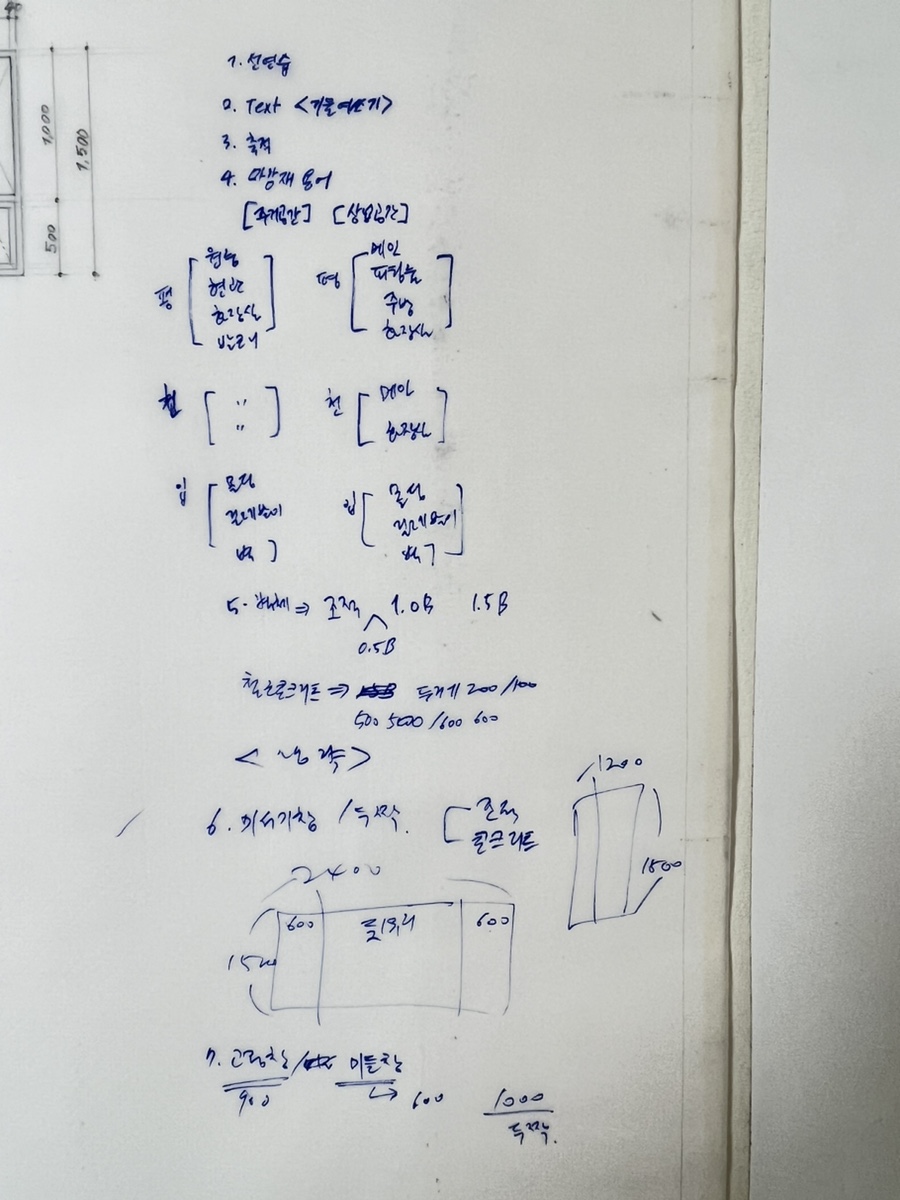 40
1,000
1,500
500
1. 선연습
2. Text <기울여쓰기>
3. 축척
4. 마감재 용어
[주거공간] [상업공간]
평 [ 평 [ 메인
현관
화장실 주방
화장실
〃 천 [ 메인 ]
〃 화장실
입 [ 몰딩 입 [ 몰딩
걸레받이 걸레받이
벽 ] 벽 ]
5. ⇒ 조적 1.0B 1.5B
0.5B
철근콘크리트 ⇒ 두께 200/100
500 500/600 600
6. 미서기창 / 두짝. 조적
콘크리트
1200
1500
2400
600 600
1500
7. 고정창 / 미들창
900 → 600
1000
두짝.